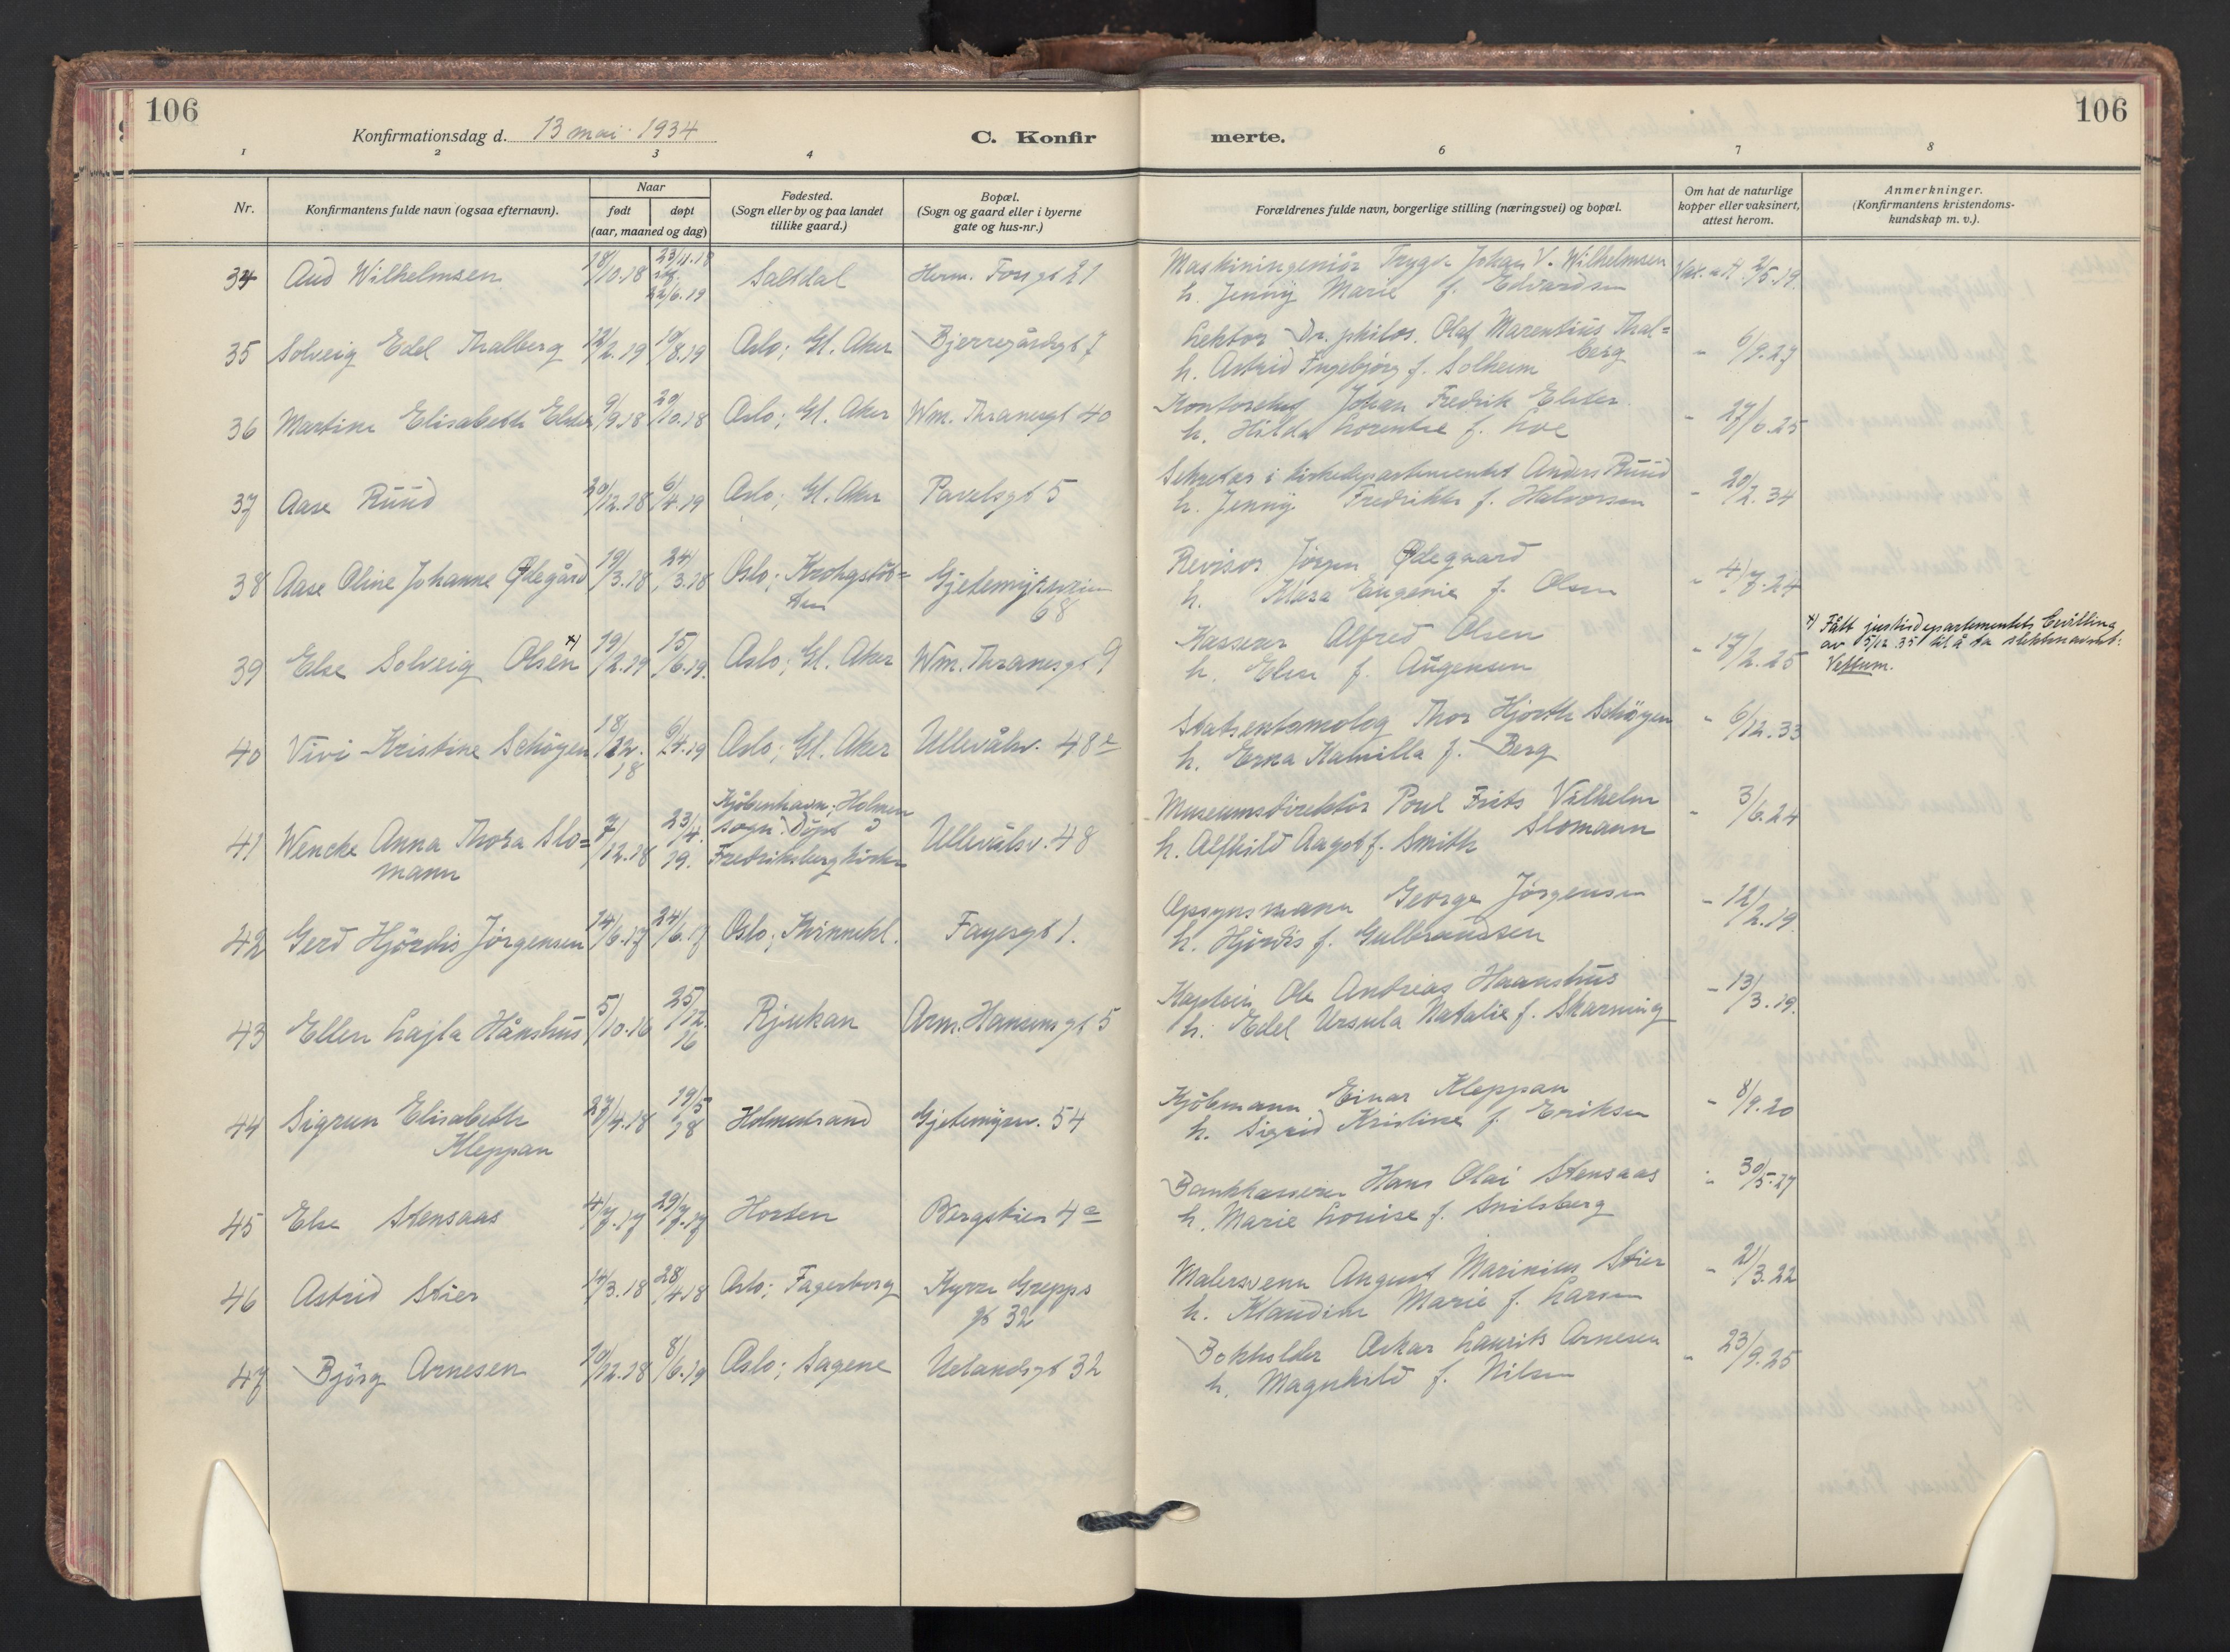 106
Konfirmationsdag d. 13 mai 1934
C. Konfir
merte.
106
1 2 3 4 6 7 8
Nr.
Konfirmantens fulde navn (ogsaa efternavn).
Naar
født døpt
(aar, maaned og dag)
Fødested.
(Sogn eller by og paa landet
tillike gaard.)
Bopæl.
(Sogn og gaard eller i byerne
gate og hus-nr.)
Forældrenes fulde navn, borgerlige stilling (næringsvei) og bopæl.
Om hat de naturlige
kopper eller vaksinert,
attest herom.
Anmerkninger.
(Konfirmantens kristendoms-
kundskap m. v.).
34 Aud Wilhelmsen 18/10.18 23/11.18 22/6.19 Saltdal Herm. Fossgt 21
Maskiningeniör Trygv. Johan V. Wilhelmsen 2/5.19.
h. Jenny Marie f. Edvardsen
35 Solveig Edel Thalberg 12/2.19 10/8.19 Oslo; Gl. Aker Bjerregårdsgt 7
Lektor Dr. philos. Olaf Marentius Thal=
berg - 6/9.27
h. Astrid Ingebjörg f. Solheim
36 Martine Elisabeth Elster 9/9.18 20/10.18 Oslo; Gl. Aker Wm. Thranesgt 40
Kontorchef Johan Fredrik Elster - 27/6.25
h. Hilda Lorentze f. Loe
37 Aase Ruud 20/12.18 6/4.19 Oslo; Gl. Aker Pavelsgt 5
Sekretær i kirkedepartementet Anders Ruud - 20/2.34
h. Jenny Fredrikke f. Halvorsen
38 Aase Oline Johanne Ødegård 19/3.18 24/3.18 Oslo; Krohgstöt=
ten Gjetemyrsveien
68
Revisor Jörgen Ødegaard - 4/7.24
h. Klara Eugenie f. Olsen
39 Else Solveig Olsen x) 19/2.19 15/6.19. Oslo; Gl. Aker Wm. Thranesgt 9
Kasserer Alfred Olsen - 17/2.25
h. Elen f. Augensen
x) Fått justisdepartementets bevilling
av 5/12 35 til å ta slektsnavnet:
Vettum.
40 Vivi-Kristine Schöyen 18/12.
18 6/4.19 Oslo; Gl. Aker Ullevålsv. 48
Statsentomolog Thor Hjorth Schöyen - 6/12.33
h. Erna Kamilla f. Berg
41 Wencke Anna Thora Slo=
mann 7/12.18 23/4.
19. Kjöbenhavn; Holmen
sogn. Döpt i
Fredriksberg kirke Ullevålsv. 48
Museumsdirektör Poul Frits Vilhelm
Slomann - 3/6.24
h. Alfhild Aagot f. Smith
42 Gerd Hjördis Jörgensen 14/6.17 24/6.17 Oslo; Kvinnekl. Fayesgt 1.
Opsynsmann George Jörgensen - 12/2.19.
h. Hjördis f. Gulbrandsen
43 Ellen Lajla Hånshus 5/10.16 25/12.
16 Rjukan Arm. Hansensgt 5
Kaptein Ole Andreas Haanshus - 13/3.19.
h. Edel Ursula Natalie f. Skarning
44 Sigrun Elisabeth
Kleppan 27/4.18 19/5
18 Holmestrand Gjetemyrsv. 54
Kjöbmann Einar Kleppan - 8/9.20
h. Sigrid Kristine f. Eriksen
45 Else Stensaas 4/7.17 29/7.17 Horten Bergstien 4
Bankkasserer Hans Olai Stensaas - 30/5.27
h. Marie Louise f. Snilsberg
46 Astrid Stier 14/3.18 28/4.18 Oslo; Fagerborg Kyrre Grepps
gt 32
Malersvenn August Marinius Stier - 2/3.22
h. Klaudine Marie f. Larsen
47 Björg Arnesen 10/12.18 8/6.19 Oslo; Sagene Uelandsgt 32
Bokholder Oskar Laurits Arnesen - 23/9.25
h. Magnhild f. Nilsen